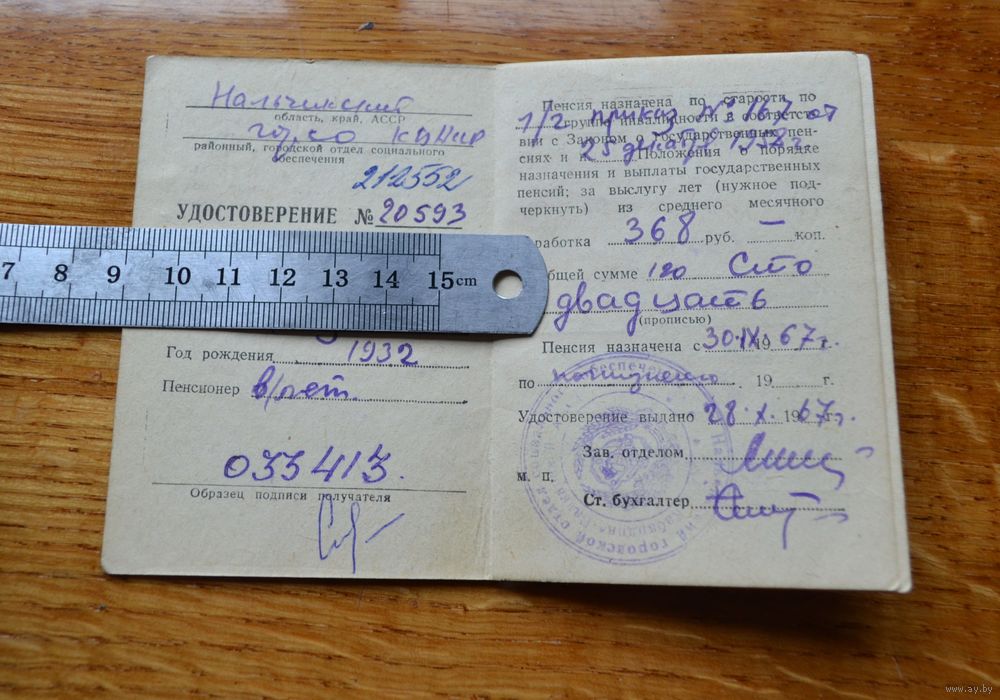 Нальчикский
область, край, АССР
горсо КБАССР
районный, городской отдел социального
обеспечения
212552
УДОСТОВЕРЕНИЕ № 20593
7 8 9 10 11 12 13 14 15 cm
Год рождения 1932
Пенсионер в/лет.
033413.
Образец подписи получателя
Пенсия назначена по старости по
1/2 приказ № 167 от
группе инвалидности в соответст-
вии с Законом о Государственных пен-
25 декабря 1958 г.
сиях и Положения о порядке
назначения и выплаты государственных
пенсий; за выслугу лет (нужное под-
черкнуть) из среднего месячного
работка 368 руб. — коп.
общей сумме 120 Сто
двадцать
(прописью)
Пенсия назначена с 30.IX.1967 г.
по пожизненно . 19 г.
Удостоверение выдано 28.X.1967 г.
Зав. отделом
м. п.
Ст. бухгалтер
www.ay.by